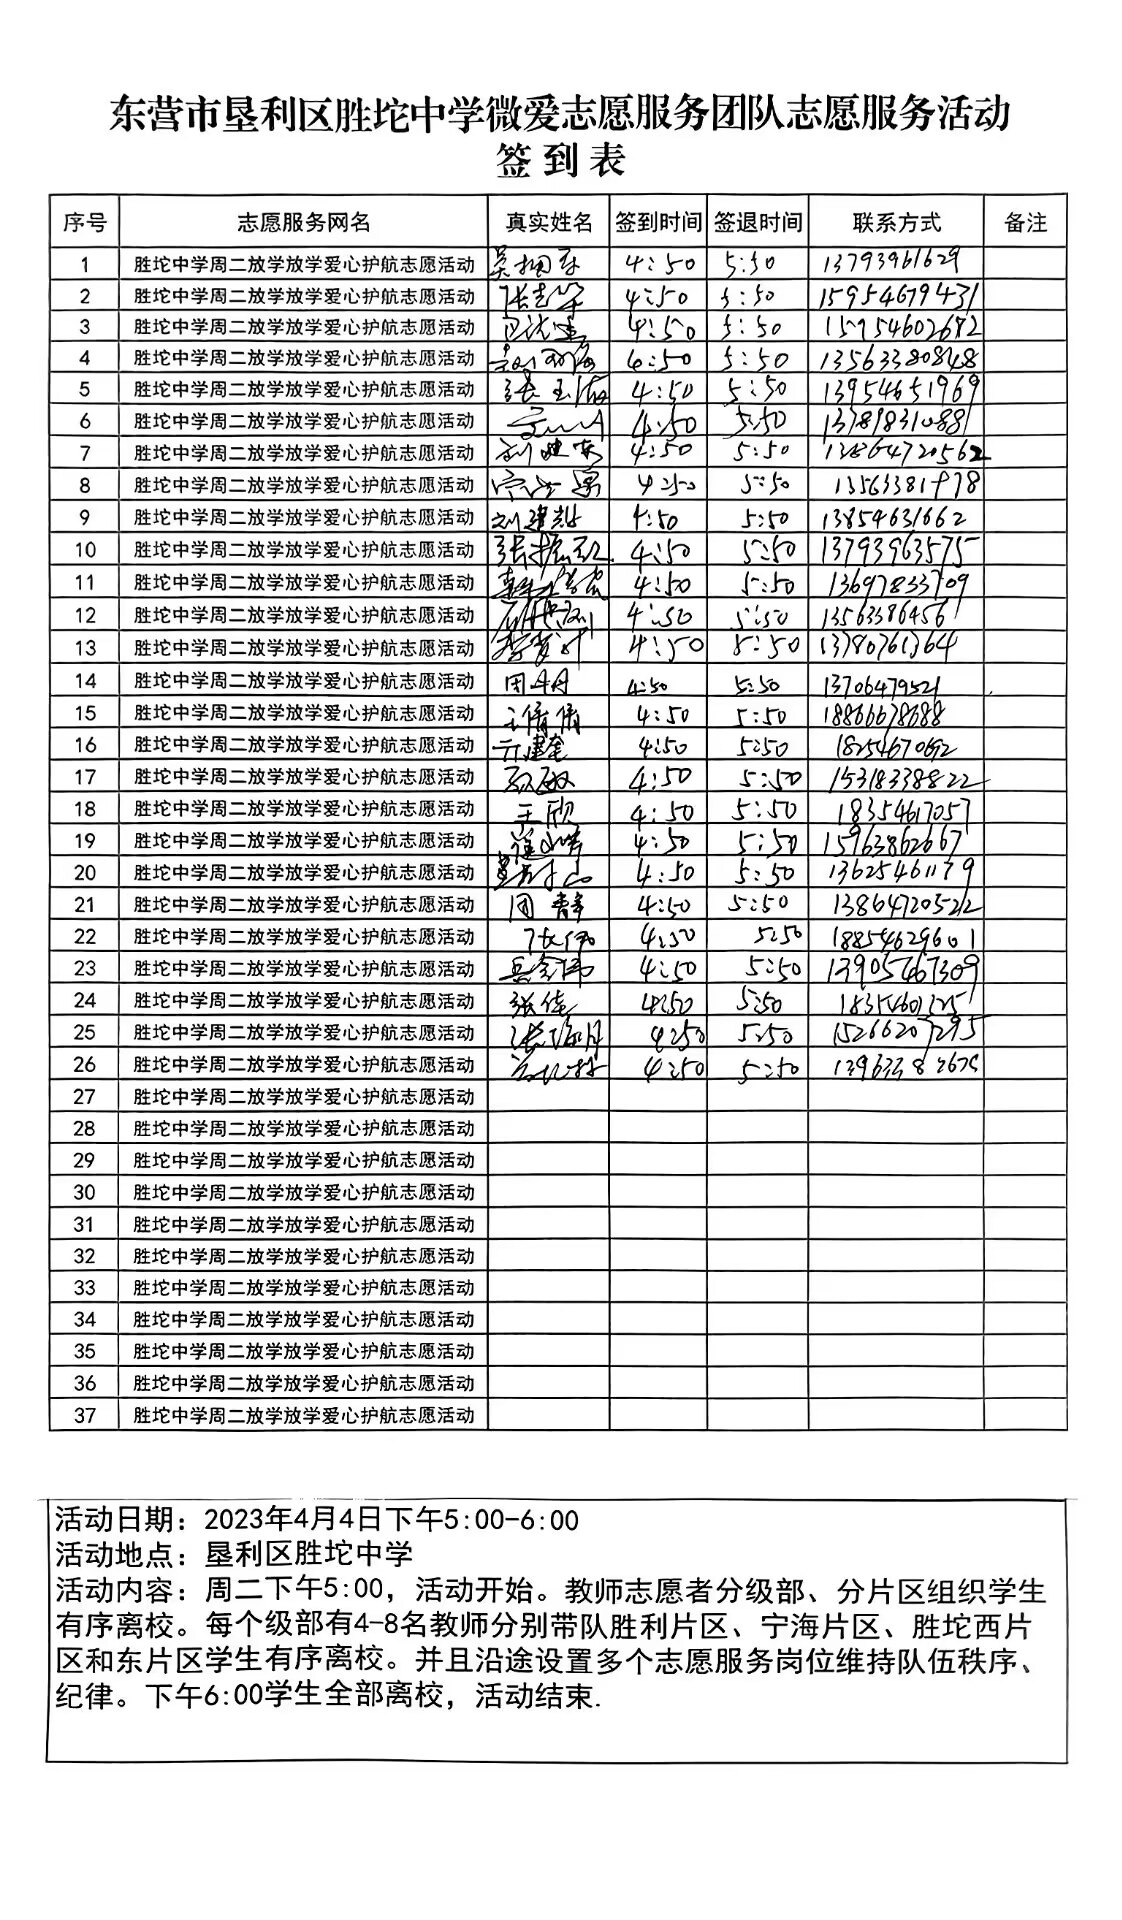 东营市垦利区胜坨中学微爱志愿服务团队志愿服务活动
签到表
序号 志愿服务网名 真实姓名 签到时间 签退时间 联系方式 备注
1 胜坨中学周二放学放学爱心护航志愿活动 4:50 5:50 13793961629
2 胜坨中学周二放学放学爱心护航志愿活动 4:50 5:50 15954679431
3 胜坨中学周二放学放学爱心护航志愿活动 4:50 5:50 15954602682
4 胜坨中学周二放学放学爱心护航志愿活动 4:50 5:50 13563380848
5 胜坨中学周二放学放学爱心护航志愿活动 张玉海 4:50 5:50 13954651969
6 胜坨中学周二放学放学爱心护航志愿活动 4:50 5:50
7 胜坨中学周二放学放学爱心护航志愿活动 4:50 5:50 13864720562
8 胜坨中学周二放学放学爱心护航志愿活动 4:50 5:50
9 胜坨中学周二放学放学爱心护航志愿活动 4:50 5:50 13854631662
10 胜坨中学周二放学放学爱心护航志愿活动 4:50 5:50 13793963575
11 胜坨中学周二放学放学爱心护航志愿活动 4:50 5:50 13697833709
12 胜坨中学周二放学放学爱心护航志愿活动 4:50 5:50 13563386456
13 胜坨中学周二放学放学爱心护航志愿活动 4:50 5:50 13780761364
14 胜坨中学周二放学放学爱心护航志愿活动 4:50 5:50 13706479521
15 胜坨中学周二放学放学爱心护航志愿活动 王倩倩 4:50 5:50 18866678688
16 胜坨中学周二放学放学爱心护航志愿活动 4:50 5:50 18254670692
17 胜坨中学周二放学放学爱心护航志愿活动 4:50 5:50 15318338822
18 胜坨中学周二放学放学爱心护航志愿活动 王欣 4:50 5:50 18354617057
19 胜坨中学周二放学放学爱心护航志愿活动 4:50 5:50 15963862667
20 胜坨中学周二放学放学爱心护航志愿活动 4:50 5:50 13625461179
21 胜坨中学周二放学放学爱心护航志愿活动 周静 4:50 5:50 13864720522
22 胜坨中学周二放学放学爱心护航志愿活动 张伟 4:50 5:50 18854629601
23 胜坨中学周二放学放学爱心护航志愿活动 4:50 5:50 13905467309
24 胜坨中学周二放学放学爱心护航志愿活动 张佳 4:50 5:50
25 胜坨中学周二放学放学爱心护航志愿活动 张海月 4:50 5:50 15266207295
26 胜坨中学周二放学放学爱心护航志愿活动 4:50 5:50
27 胜坨中学周二放学放学爱心护航志愿活动
28 胜坨中学周二放学放学爱心护航志愿活动
29 胜坨中学周二放学放学爱心护航志愿活动
30 胜坨中学周二放学放学爱心护航志愿活动
31 胜坨中学周二放学放学爱心护航志愿活动
32 胜坨中学周二放学放学爱心护航志愿活动
33 胜坨中学周二放学放学爱心护航志愿活动
34 胜坨中学周二放学放学爱心护航志愿活动
35 胜坨中学周二放学放学爱心护航志愿活动
36 胜坨中学周二放学放学爱心护航志愿活动
37 胜坨中学周二放学放学爱心护航志愿活动
活动日期：2023年4月4日下午5:00-6:00
活动地点：垦利区胜坨中学
活动内容：周二下午5:00，活动开始。教师志愿者分级部、分片区组织学生
有序离校。每个级部有4-8名教师分别带队胜利片区、宁海片区、胜坨西片
区和东片区学生有序离校。并且沿途设置多个志愿服务岗位维持队伍秩序、
纪律。下午6:00学生全部离校，活动结束.